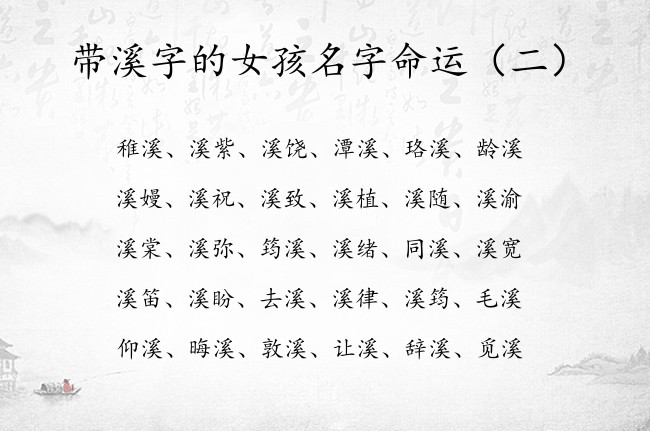 带溪字的女孩名字命运（二）
稚溪、溪紫、溪饶、潭溪、珞溪、龄溪
溪嫚、溪祝、溪致、溪植、溪随、溪渝
溪棠、溪弥、筠溪、溪绪、同溪、溪宽
溪笛、溪盼、去溪、溪律、溪筠、毛溪
仰溪、晦溪、敦溪、让溪、辞溪、觅溪